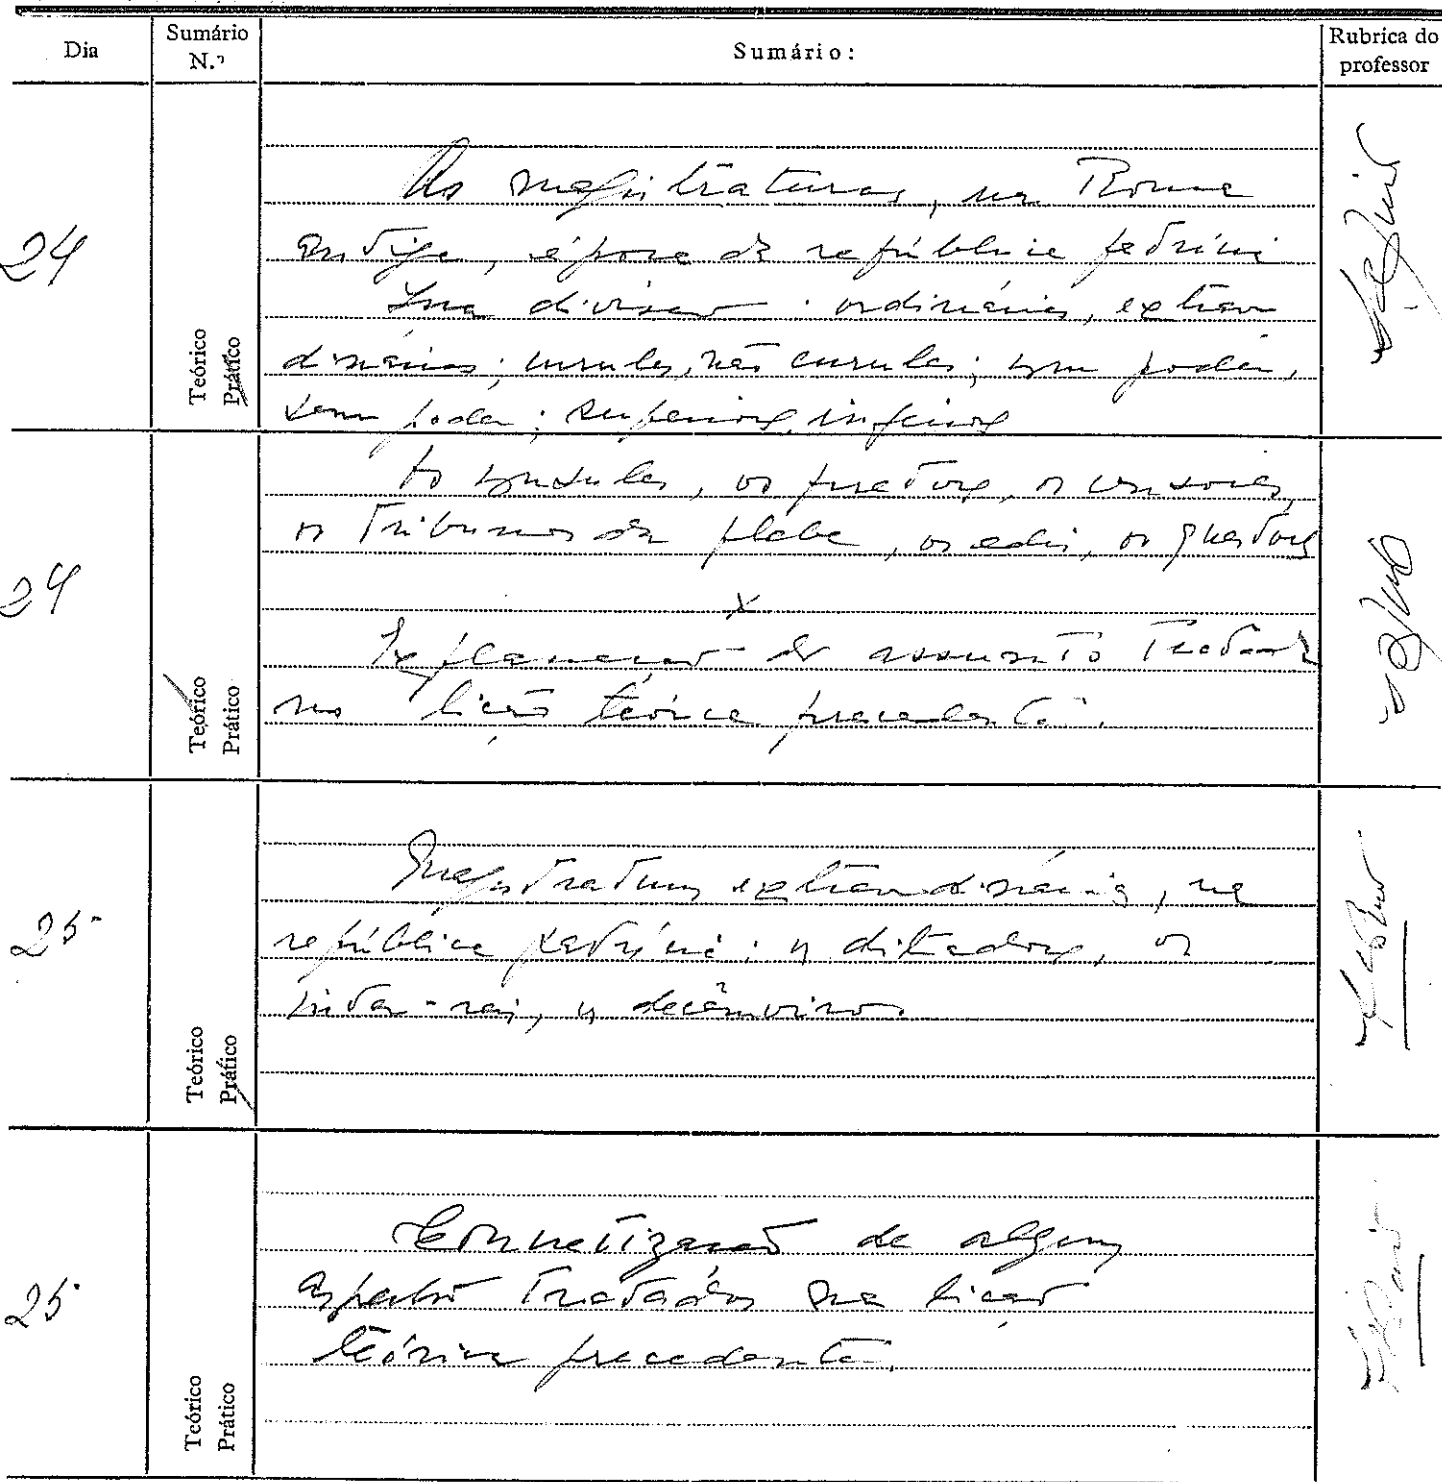 Dia
Sumário N.º
Sumário:
Rubrica do professor
24
Teórico
Prático
As magistraturas, na Roma
antiga, época da república patrícia
Sua divisão: ordinárias, extraor
dinárias; curules, não curules; com poder,
sem poder; superiores, inferiores
24
Teórico
Prático
Os cônsules, os pretores, os censores,
os tribunos da plebe, os edis, os questores
x
Explanação do assunto tratado
na lição teórica precedente.
25
Teórico
Prático
Magistraturas extraordinárias, na
república patrícia: os ditadores, os
inter-reis, os decênviros.
25
Teórico
Prático
Concretização de alguns
aspectos tratados na lição
teórica precedente.